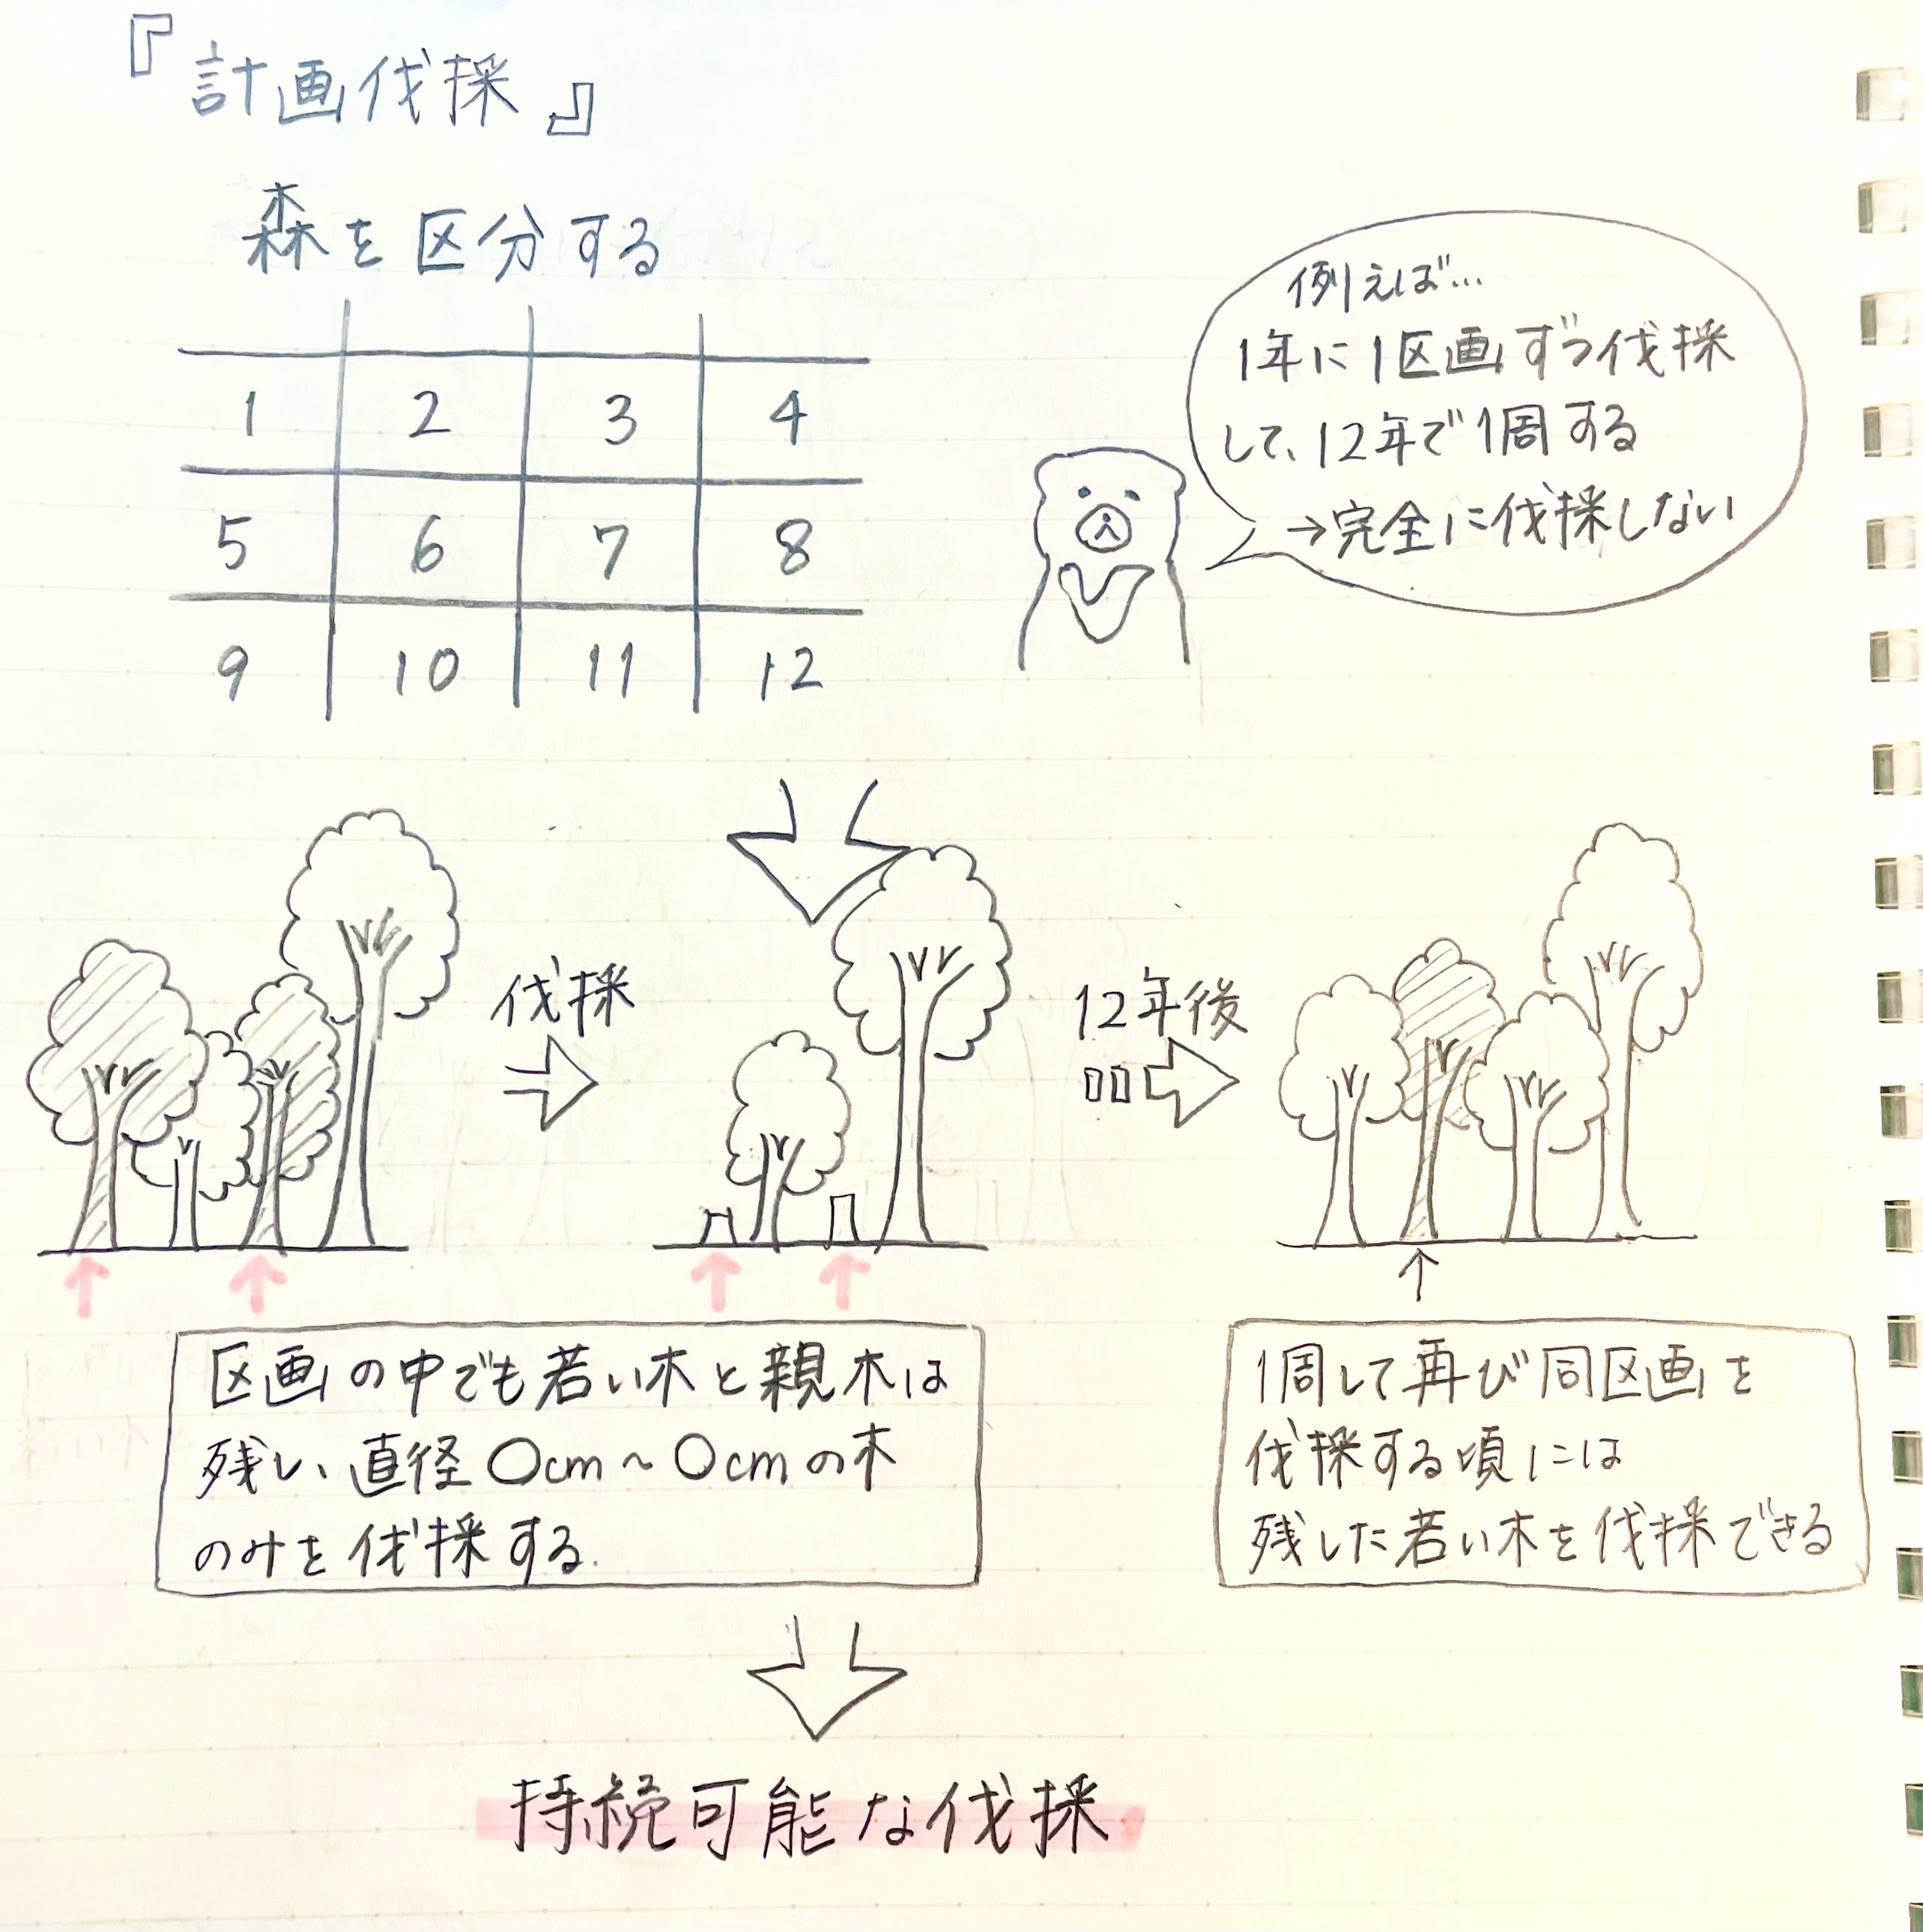 『計画伐採』
森を区分する
1 2 3 4
5 6 7 8
9 10 11 12
例えば…
1年に1区画ずつ伐採
して、12年で1周する
→完全に伐採しない
伐採
12年後
区画の中でも若い木と親木は
残し、直径〇cm～〇cmの木
のみを伐採する.
1周して再び同区画を
伐採する頃には
残した若い木を伐採できる
持続可能な伐採